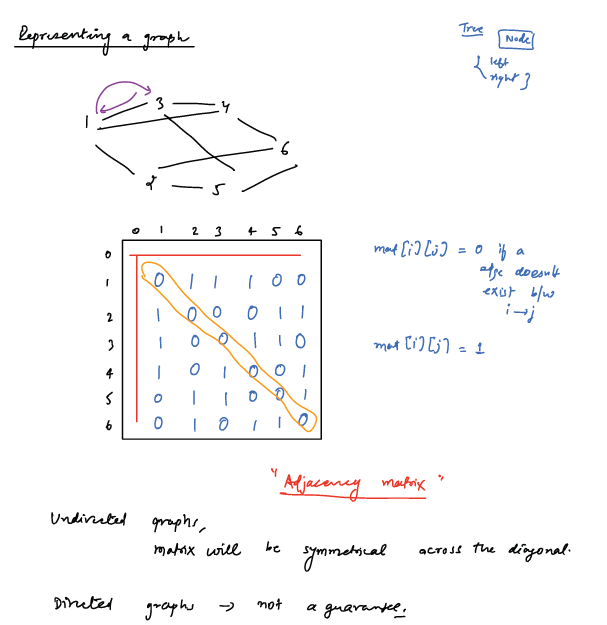 Representing a graph
Tree Node
{ left
right }
3 4
1
6
2 5
0 1 2 3 4 5 6
0
1 0 1 1 1 0 0
2 1 0 0 0 1 1
3 1 0 0 1 1 0
4 1 0 1 0 0 1
5 0 1 1 0 0 1
6 0 1 0 1 1 0
mat[i][j] = 0 if a
edge doesn't
exist b/w
i→j
mat[i][j] = 1
"Adjacency matrix"
Undirected graphs,
matrix will be symmetrical across the diagonal.
Directed graph → not a guarantee.